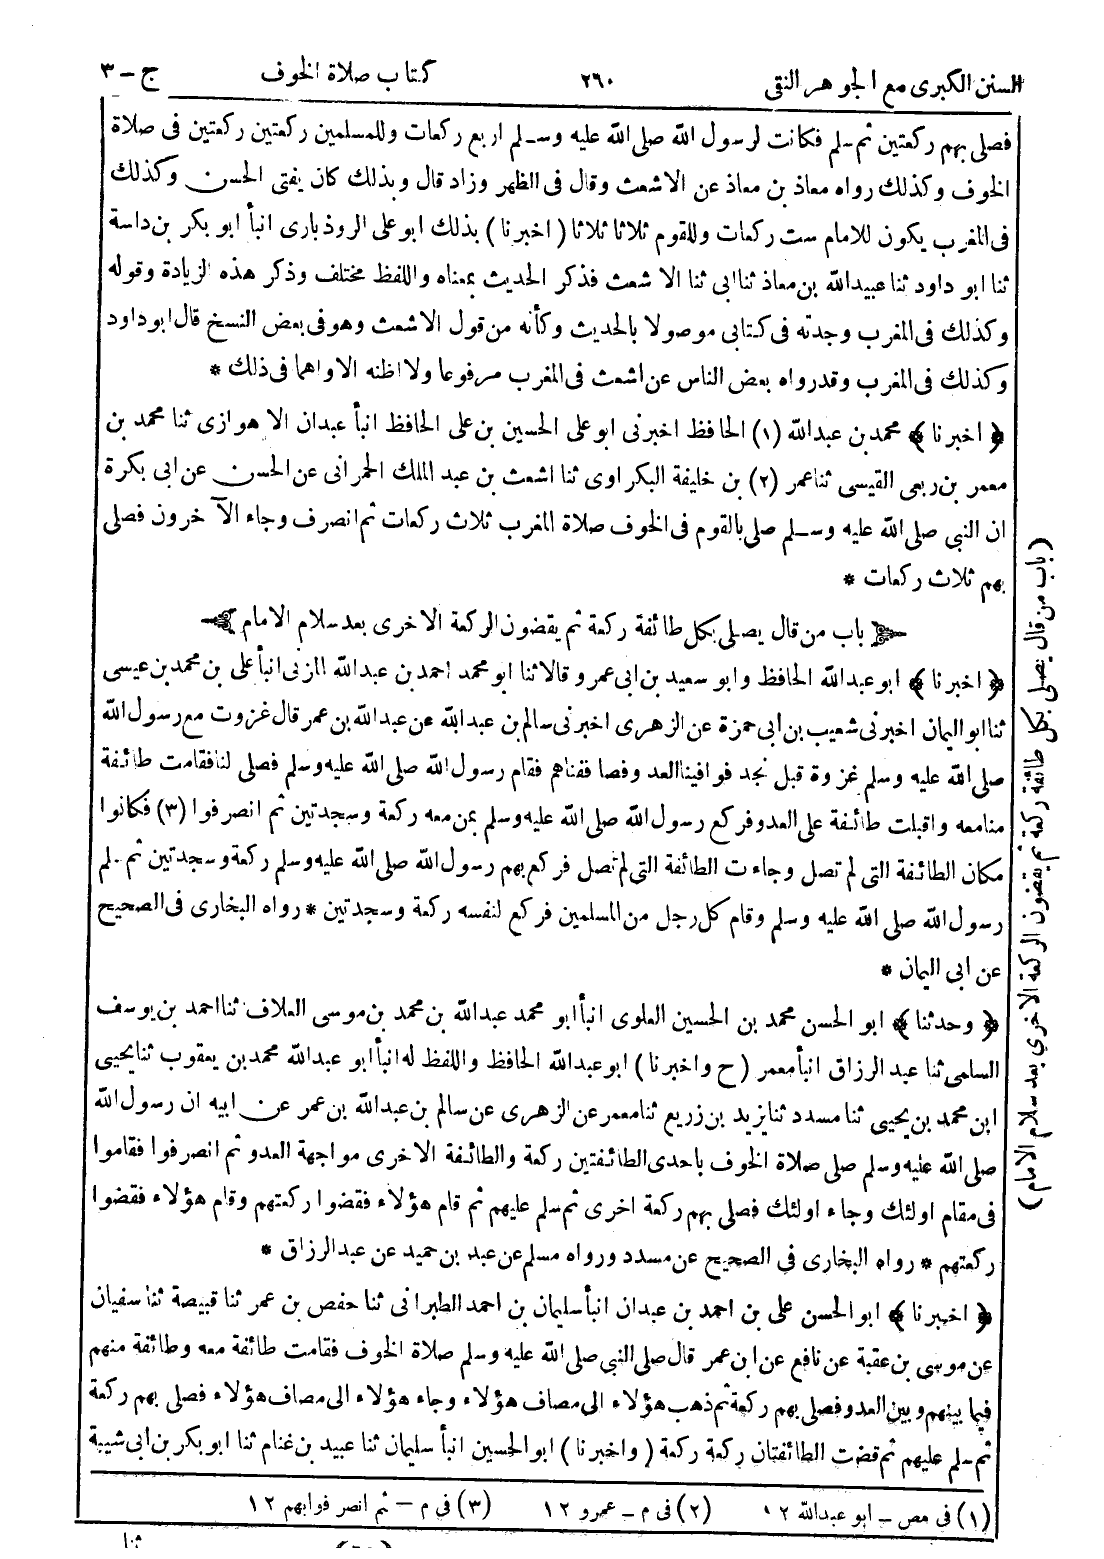 السنن الكبرى مع الجوهر النقى ٢٦٠ كتاب صلاة الخوف ج - ٣
فصلى بهم ركعتين ثم سلم فكانت لرسول الله صلى الله عليه وسلم اربع ركعات وللمسلمين ركعتين ركعتين فى صلاة
الخوف وكذلك رواه معاذ بن معاذ عن الاشعث وقال فى الظهر وزاد قال وبذلك كان يفتى الحسن وكذلك
فى المغرب يكون للامام ست ركعات وللقوم ثلاثا ثلاثا (اخبرنا) بذلك ابو على الروذبارى انبأ ابو بكر بن داسة
ثنا ابو داود ثنا عبيدالله بن معاذ ثنا ابى ثنا الاشعث فذكر الحديث بمعناه واللفظ مختلف وذكر هذه الزيادة وقوله
وكذلك فى المغرب وجدته فى كتابى موصولا بالحديث وكأنه من قول الاشعث وهو فى بعض النسخ قال ابو داود
وكذلك فى المغرب وقد رواه بعض الناس عن اشعث فى المغرب مرفوعا ولا اظنه الا واهما فى ذلك *
﴿ اخبرنا ﴾ محمد بن عبدالله (١) الحافظ اخبرنى ابو على الحسين بن على الحافظ انبأ عبدان الاهوازى ثنا محمد بن
معمر بن ربعى القيسى ثنا عمر (٢) بن خليفة البكراوى ثنا اشعث بن عبد الملك الحمرانى عن الحسن عن ابى بكرة
ان النبى صلى الله عليه وسلم صلى بالقوم فى الخوف صلاة المغرب ثلاث ركعات ثم انصرف وجاء الآخرون فصلى
بهم ثلاث ركعات *
باب من قال يصلى بكل طائفة ركعة ثم يقضون الركعة الاخرى بعد سلام الامام
﴿ اخبرنا ﴾ ابو عبدالله الحافظ وابو سعيد بن ابى عمرو قالا ثنا ابو محمد احمد بن عبدالله المزنى انبأ على بن محمد بن عيسى
ثنا ابو اليمان اخبرنى شعيب بن ابى حمزة عن الزهرى اخبرنى سالم بن عبدالله عن عبدالله بن عمر قال غزوت مع رسول الله
صلى الله عليه وسلم غزوة قبل نجد فوافينا العدو فصاففناهم فقام رسول الله صلى الله عليه وسلم فصلى لنا فقامت طائفة
منا معه واقبلت طائفة على العدو فركع رسول الله صلى الله عليه وسلم بمن معه ركعة وسجدتين ثم انصرفوا (٣) فكانوا
مكان الطائفة التى لم تصل وجاءت الطائفة التى لم تصل فركع بهم رسول الله صلى الله عليه وسلم ركعة وسجدتين ثم سلم
رسول الله صلى الله عليه وسلم وقام كل رجل من المسلمين فركع لنفسه ركعة وسجدتين * رواه البخارى فى الصحيح
عن ابى اليمان *
﴿ وحدثنا ﴾ ابو الحسن محمد بن الحسين العلوى انبأ ابو محمد عبدالله بن محمد بن موسى العلاف ثنا احمد بن يوسف
السلمى ثنا عبد الرزاق انبأ معمر (ح واخبرنا) ابو عبدالله الحافظ واللفظ له انبأ ابو عبدالله محمد بن يعقوب ثنا يحيى
ابن محمد بن يحيى ثنا مسدد ثنا يزيد بن زريع ثنا معمر عن الزهرى عن سالم بن عبدالله بن عمر عن ابيه ان رسول الله
صلى الله عليه وسلم صلى صلاة الخوف باحدى الطائفتين ركعة والطائفة الاخرى مواجهة العدو ثم انصرفوا فقاموا
فى مقام اولئك وجاء اولئك فصلى بهم ركعة اخرى ثم سلم عليهم ثم قام هؤلاء فقضوا ركعتهم وقام هؤلاء فقضوا
ركعتهم * رواه البخارى فى الصحيح عن مسدد ورواه مسلم عن عبد بن حميد عن عبد الرزاق *
﴿ اخبرنا ﴾ ابو الحسن على بن احمد بن عبدان انبأ سليمان بن احمد الطبرانى ثنا حفص بن عمر ثنا قبيصة ثنا سفيان
عن موسى بن عقبة عن نافع عن ابن عمر قال صلى النبى صلى الله عليه وسلم صلاة الخوف فقامت طائفة معه وطائفة منهم
فيما بينهم وبين العدو فصلى بهم ركعة ثم ذهب هؤلاء الى مصاف هؤلاء وجاء هؤلاء الى مصاف هؤلاء فصلى بهم ركعة
ثم سلم عليهم ثم قضت الطائفتان ركعة ركعة (واخبرنا) ابو الحسين انبأ سليمان ثنا عبيد بن غنام ثنا ابو بكر بن ابى شيبة
(١) فى مص - ابو عبدالله ١٢ (٢) فى م - عمرو ١٢ (٣) فى م - ثم انصرفوا بهم ١٢
ثنا
(باب من قال يصلى بكل طائفة ركعة ثم يقضون الركعة الاخرى بعد سلام الامام)